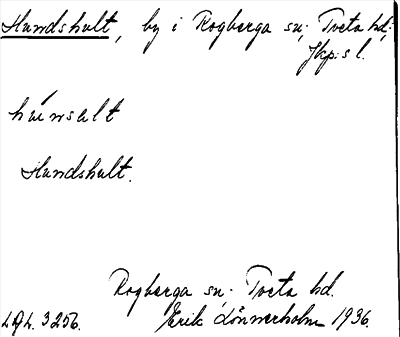 Hundshult, by i Rogberga sn; Tveta hd;
Jkp:s l.
húnsalt
Hundshult.
Rogberga sn; Tveta hd.
LAL. 3256. Erik Lönnerholm 1936.